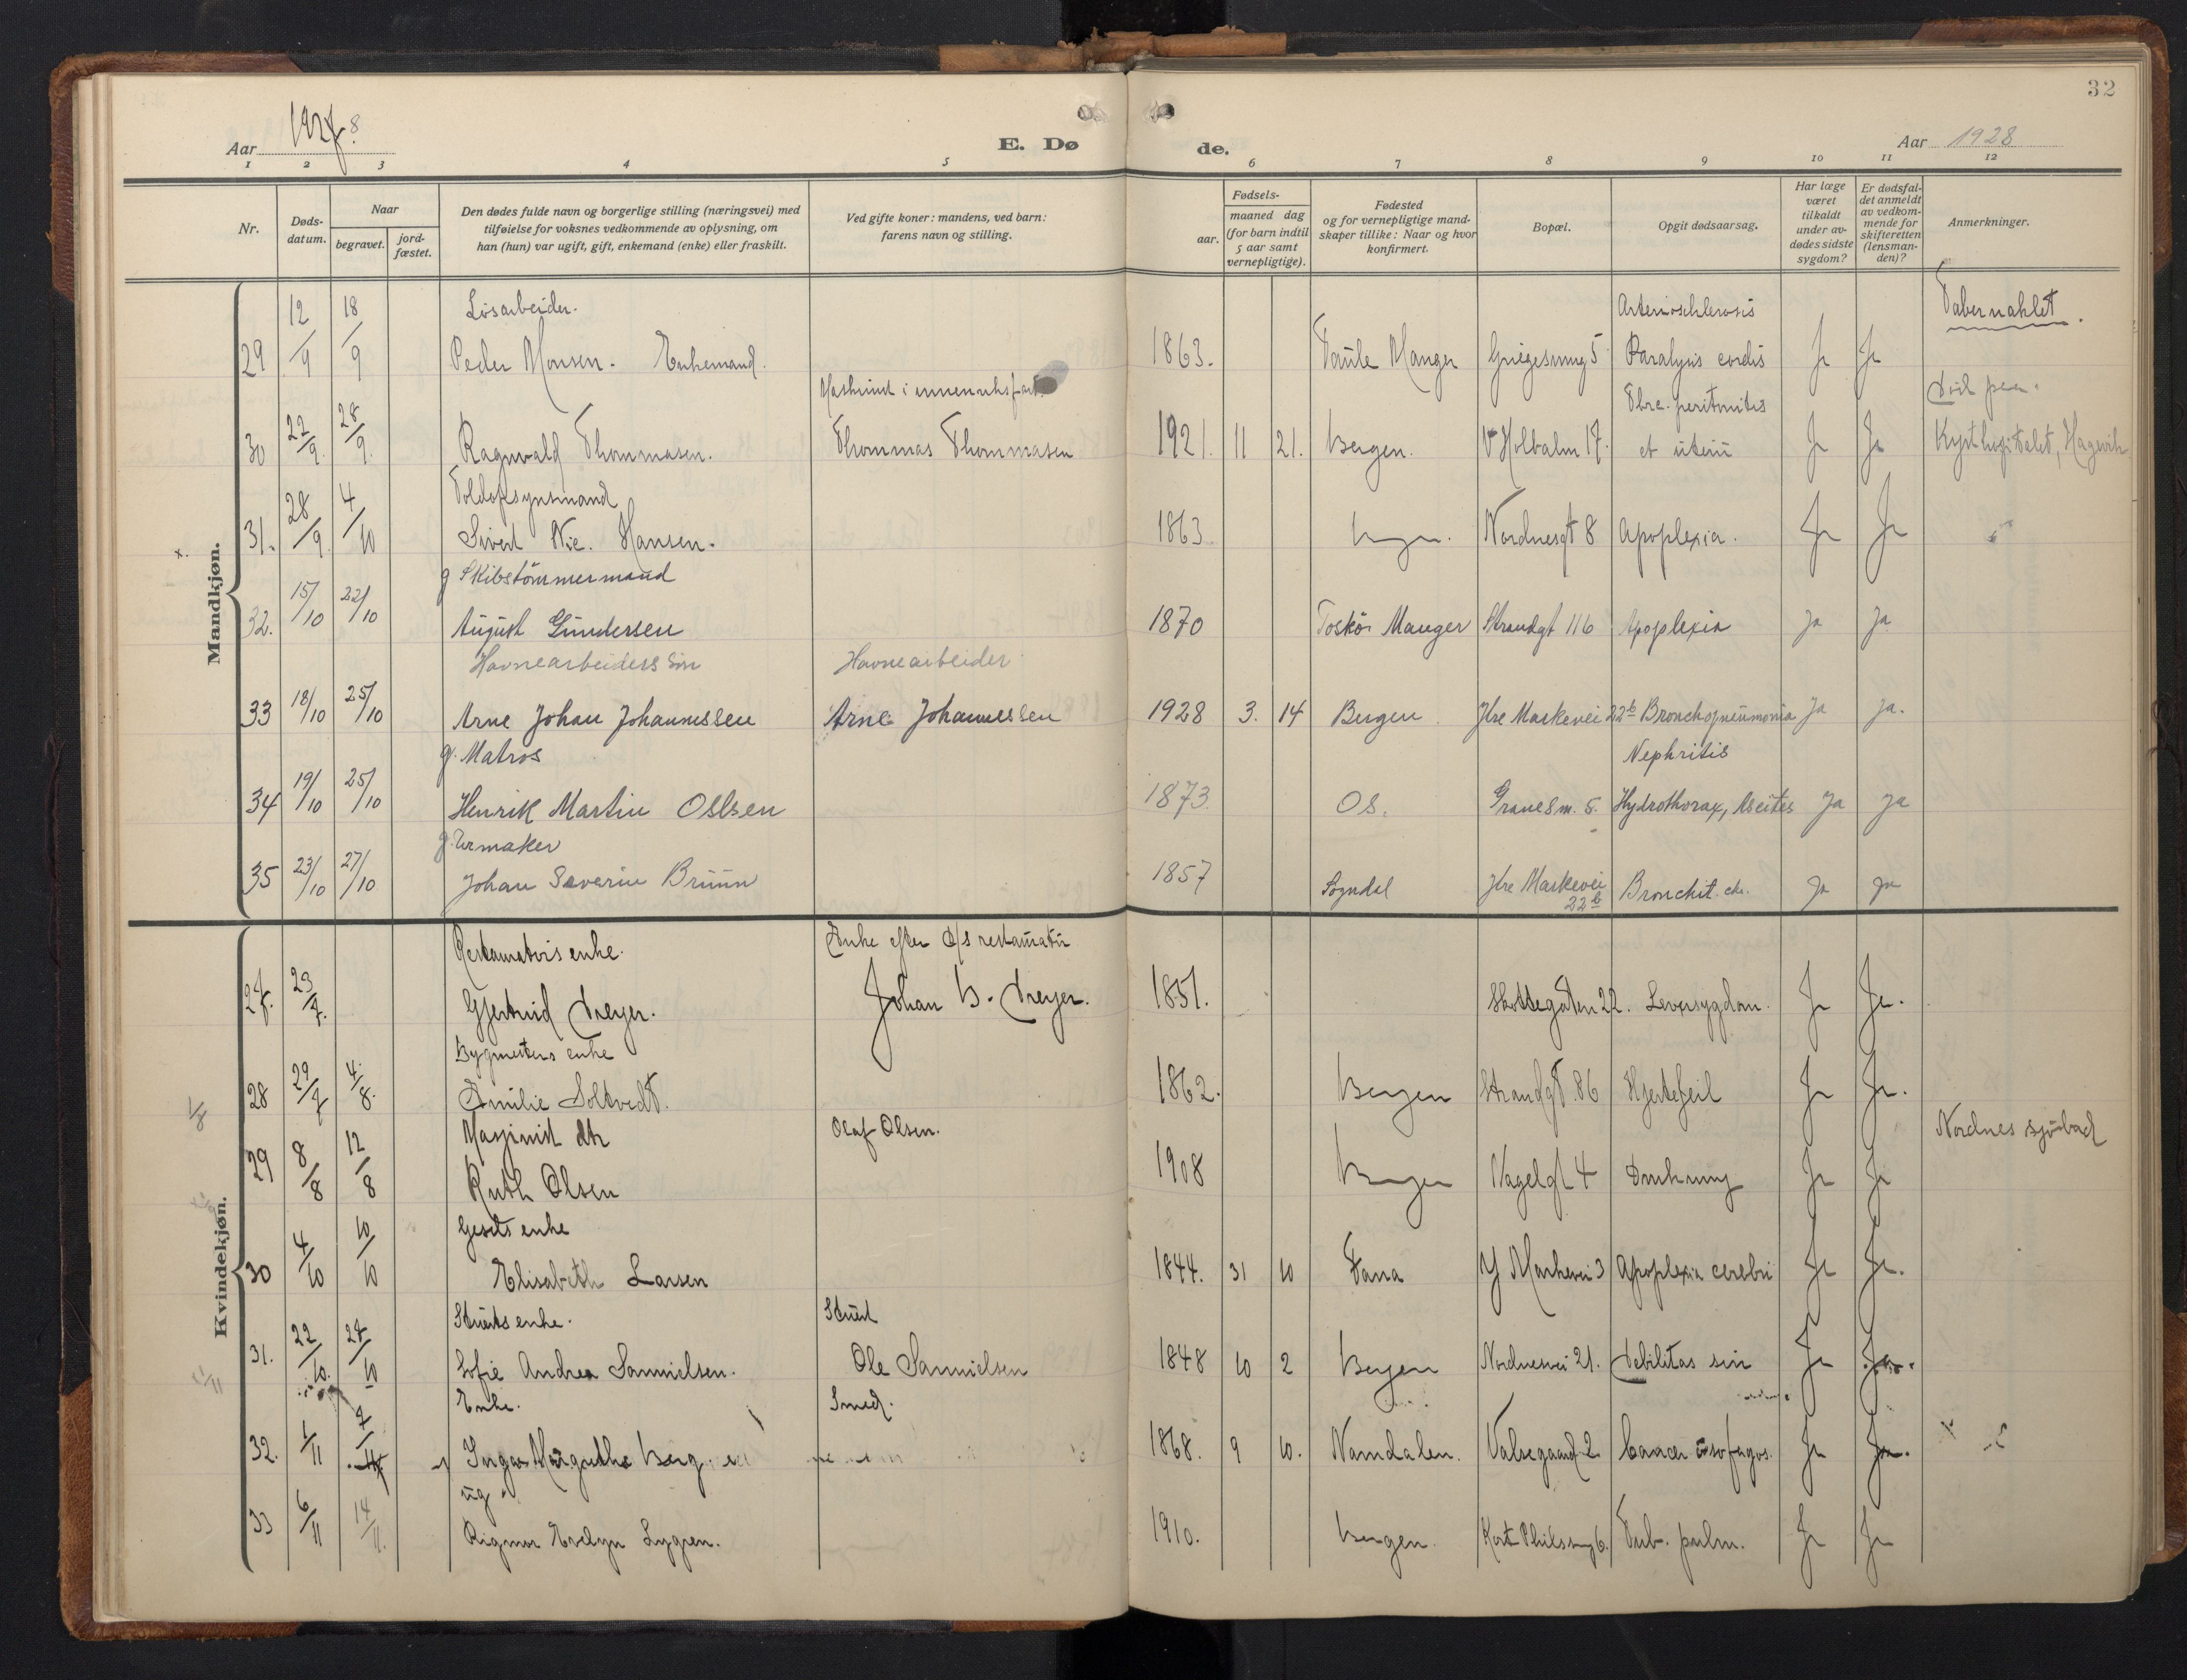 32
1928
Aar
E. Dø
de.
Aar 1928
1 2 3 4 5 6 7 8 9 10 11 12
Nr.
Døds-
datum.
Naar
begravet.
jord-
fæstet.
Den dødes fulde navn og borgerlige stilling (næringsvei) med
tilføielse for voksnes vedkommende av oplysning, om
han (hun) var ugift, gift, enkemand (enke) eller fraskilt.
Ved gifte koner: mandens, ved barn:
farens navn og stilling.
aar.
Fødsels-
maaned dag
(for barn indtil
5 aar samt
vernepligtige).
Fødested
og for vernepligtige mand-
skaper tillike: Naar og hvor
konfirmert.
Bopæl.
Opgit dødsaarsag.
Har læge
været
tilkaldt
under av-
dødes sidste
sygdom?
Er dødsfal-
det anmeldt
av vedkom-
mende for
skifteretten
(lensman-
den)?
Anmerkninger.
Mandkjøn.
Løsarbeider. Arterioschlerosis Tabernaklet.
29 12/9 18/9 Peder Monsen. Enkemand. 1863. Manger 5 Paralysis cordis Ja Ja
Maskinist i Død paa
30 22/9 28/9 Ragnvald Thommasen. Thommas Thommasen 1921. 11 21. Bergen. V Holbalm 17. peritonitis et Ja Ja Kysthospitalet, Hagevik
Toldopsynsmand
31. 28/9 4/10 Sivert Nic. Hansen. 1863 Bergen. Nordnesgt 8 Apoplexia. Ja Ja
g Skibstömmermand
32. 15/10 22/10 August Gundersen 1870 Toskö Manger Strandgt 116 Apoplexia Ja Ja
Havnearbeiders sön Havnearbeider
33 18/10 25/10 Arne Johan Johannessen Arne Johannessen 1928 3. 14 Bergen. Ytre Markevei 22b Bronchopneumonia Ja Ja.
g. Matros Nephritis
34 19/10 25/10 Henrik Martin Olsen 1873 Os. Granesm. 5. Hydrothorax, Ascites Ja Ja
g. Urmaker
35 23/10 27/10 Johan Severin Bruun 1857 Sogndal Ytre Markevei 22b Bronchit. chr. Ja Ja
Kvindekjøn.
Restauratørs enke. Enke efter d/s restauratør
27. 23/7. Gjertrud Dreyer. Johan B. Dreyer. 1851. Skottegaten 22. Leversygdom. Ja Ja.
Bygmesters enke
28 29/7 4/8. Emilie Soltvedt. 1862. Bergen Strandgt. 86 Hjertefeil Ja Ja.
Maskinist dtr Olaf Olsen. Nordnes sjöbad
29 8/8 12/8 Ruth Olsen 1908 Bergen Nagelgt 4 Drukning Ja Ja
enke
30 4/10 10/10 Elisabeth Larsen 1844. 31 10 Fana Y Markevei 3 Apoplexia cerebri Ja Ja.
Stuerts enke. Stuert
31. 22/10. 27/10 Sofie Andrea Samuelsen. Ole Samuelsen 1848 10 2 Bergen Nordnesvei 21. Debilitas sen Ja Ja.
Enke. Smed.
32. 1/11 7/11 Inga Margrethe Berg 1868. 9 10. Namdalen. Valsegaard 2 Cancer øsofagos. Ja Ja.
ug.
33 6/11 14/11. Rigmor Evelyn Lygren. 1910. Bergen. 6. Tub. pulm. Ja Ja